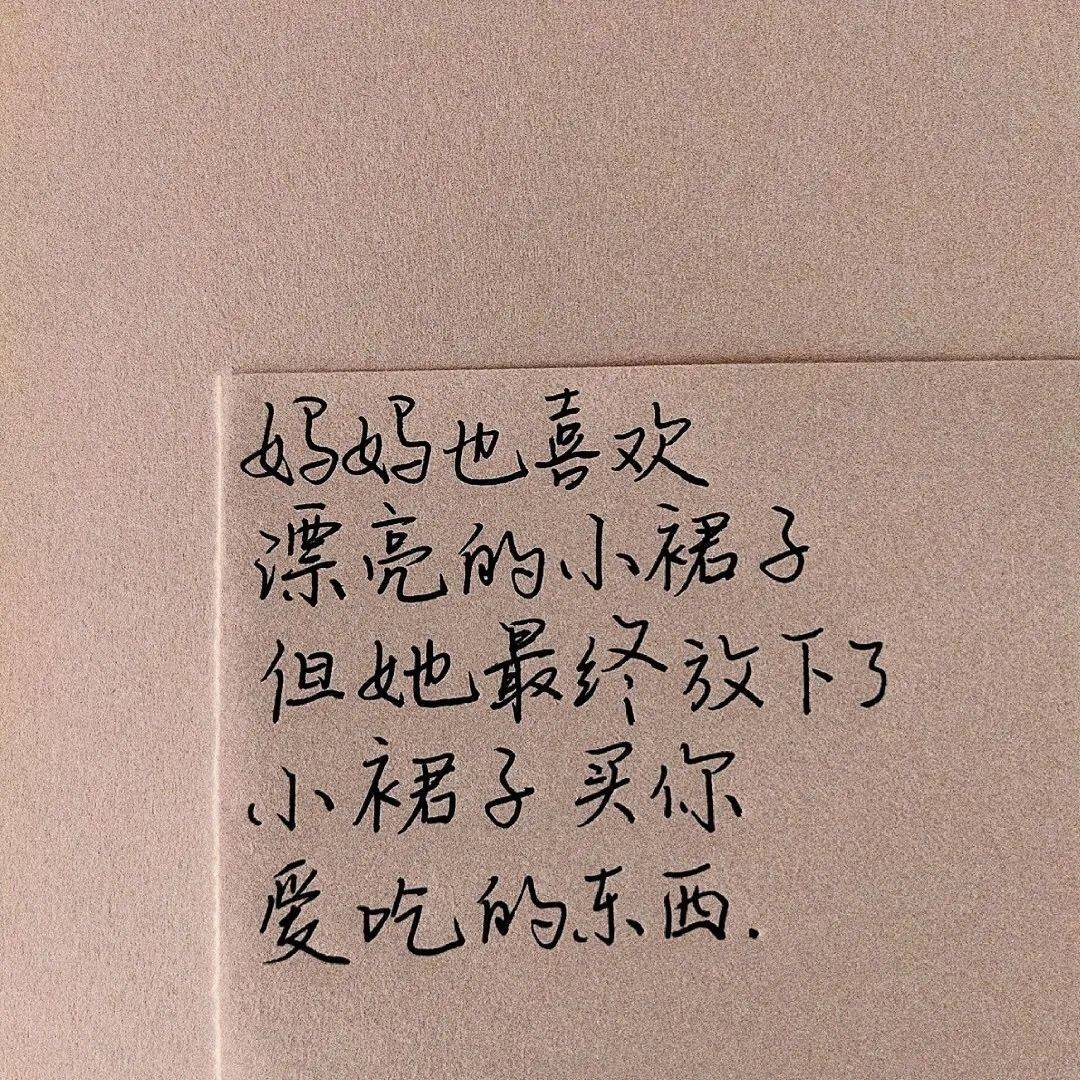 妈妈也喜欢
漂亮的小裙子
但她最终放下了
小裙子买你
爱吃的东西.